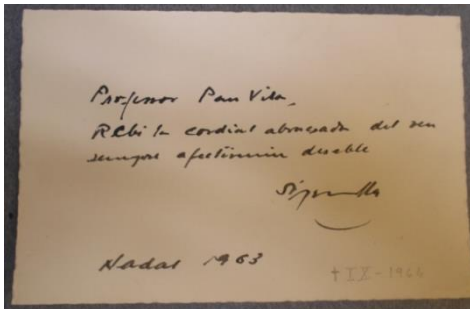 Professor Pau Vila,
Rebi la cordial abraçada del seu
sempre afectíssim deixeble
Nadal 1963